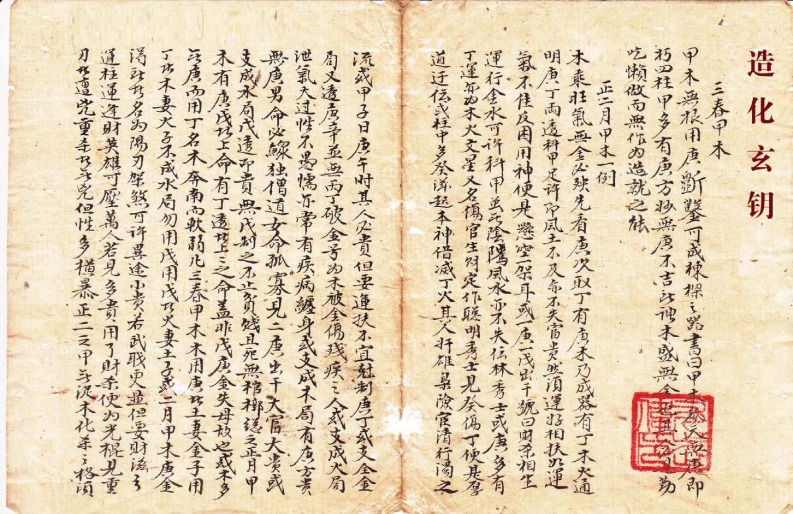 造化玄钥
三春甲木
甲木無根用庚斷鑿可成棟樑之器書曰甲木
朽四柱甲多有庚方妙無庚不吉此神木盛無金
吃懶做而無作為造就之能
正二月甲木一例
木乘壯氣無金必殃先看庚次取丁有庚木乃成器有丁木火通
明庚丁兩透科甲定許即風土不及亦不失富貴些須運好相扶如運
氣不佳反困用神便是懸空架耳或庚一戊出干號曰財殺相生
運行金水可許科甲並無陰隲風水亦不失位林秀士或庚多有
丁運亦為木火文星又名傷官生財定作聰明秀士見癸傷丁便是
道迂儒或柱中多癸滋起木神借滅丁火其人奸雄梟險官清行濁之
流或甲子日庚午時其人必貴但要運扶不宜尅制庚丁或支全金
局又透庚辛並無丙丁破金号為木被金傷殘疾之人或支成火局
泄氣太過性不愚懦亦常有疾病纏身或支成木局有庚方貴
無庚男命必鰥独僧道女命孤寡見二庚出干大富大貴或
支成水局戊透即貴無戊制之不止負賤且死無棺槨總之正月甲
木有庚戊此上命有丁透此上之命盖非戊庚金失母故也或木多
無庚而用丁名木奔南而軟弱凡三春甲木木用庚此土妻金子用
丁此木妻火子不成水局勿用戊用戊此火妻土子或二月甲木庚金
得所名為陽刃架煞可許異途小貴若武職更並但要財滋
運柱運逢財英雄可壓萬人若見多貴用丁財来便为光棍見重
刃此遭凶重